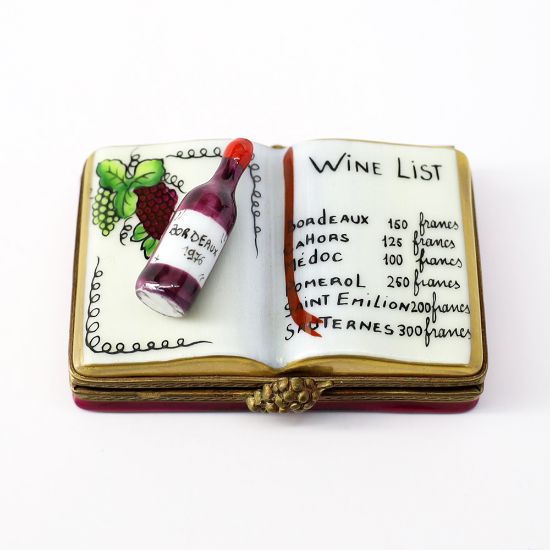 BORDEAUX
1976
WINE LIST
BORDEAUX 150 francs
CAHORS 125 francs
MÉDOC 100 francs
POMEROL 250 francs
SAINT EMILION 200 francs
SAUTERNES 300 francs